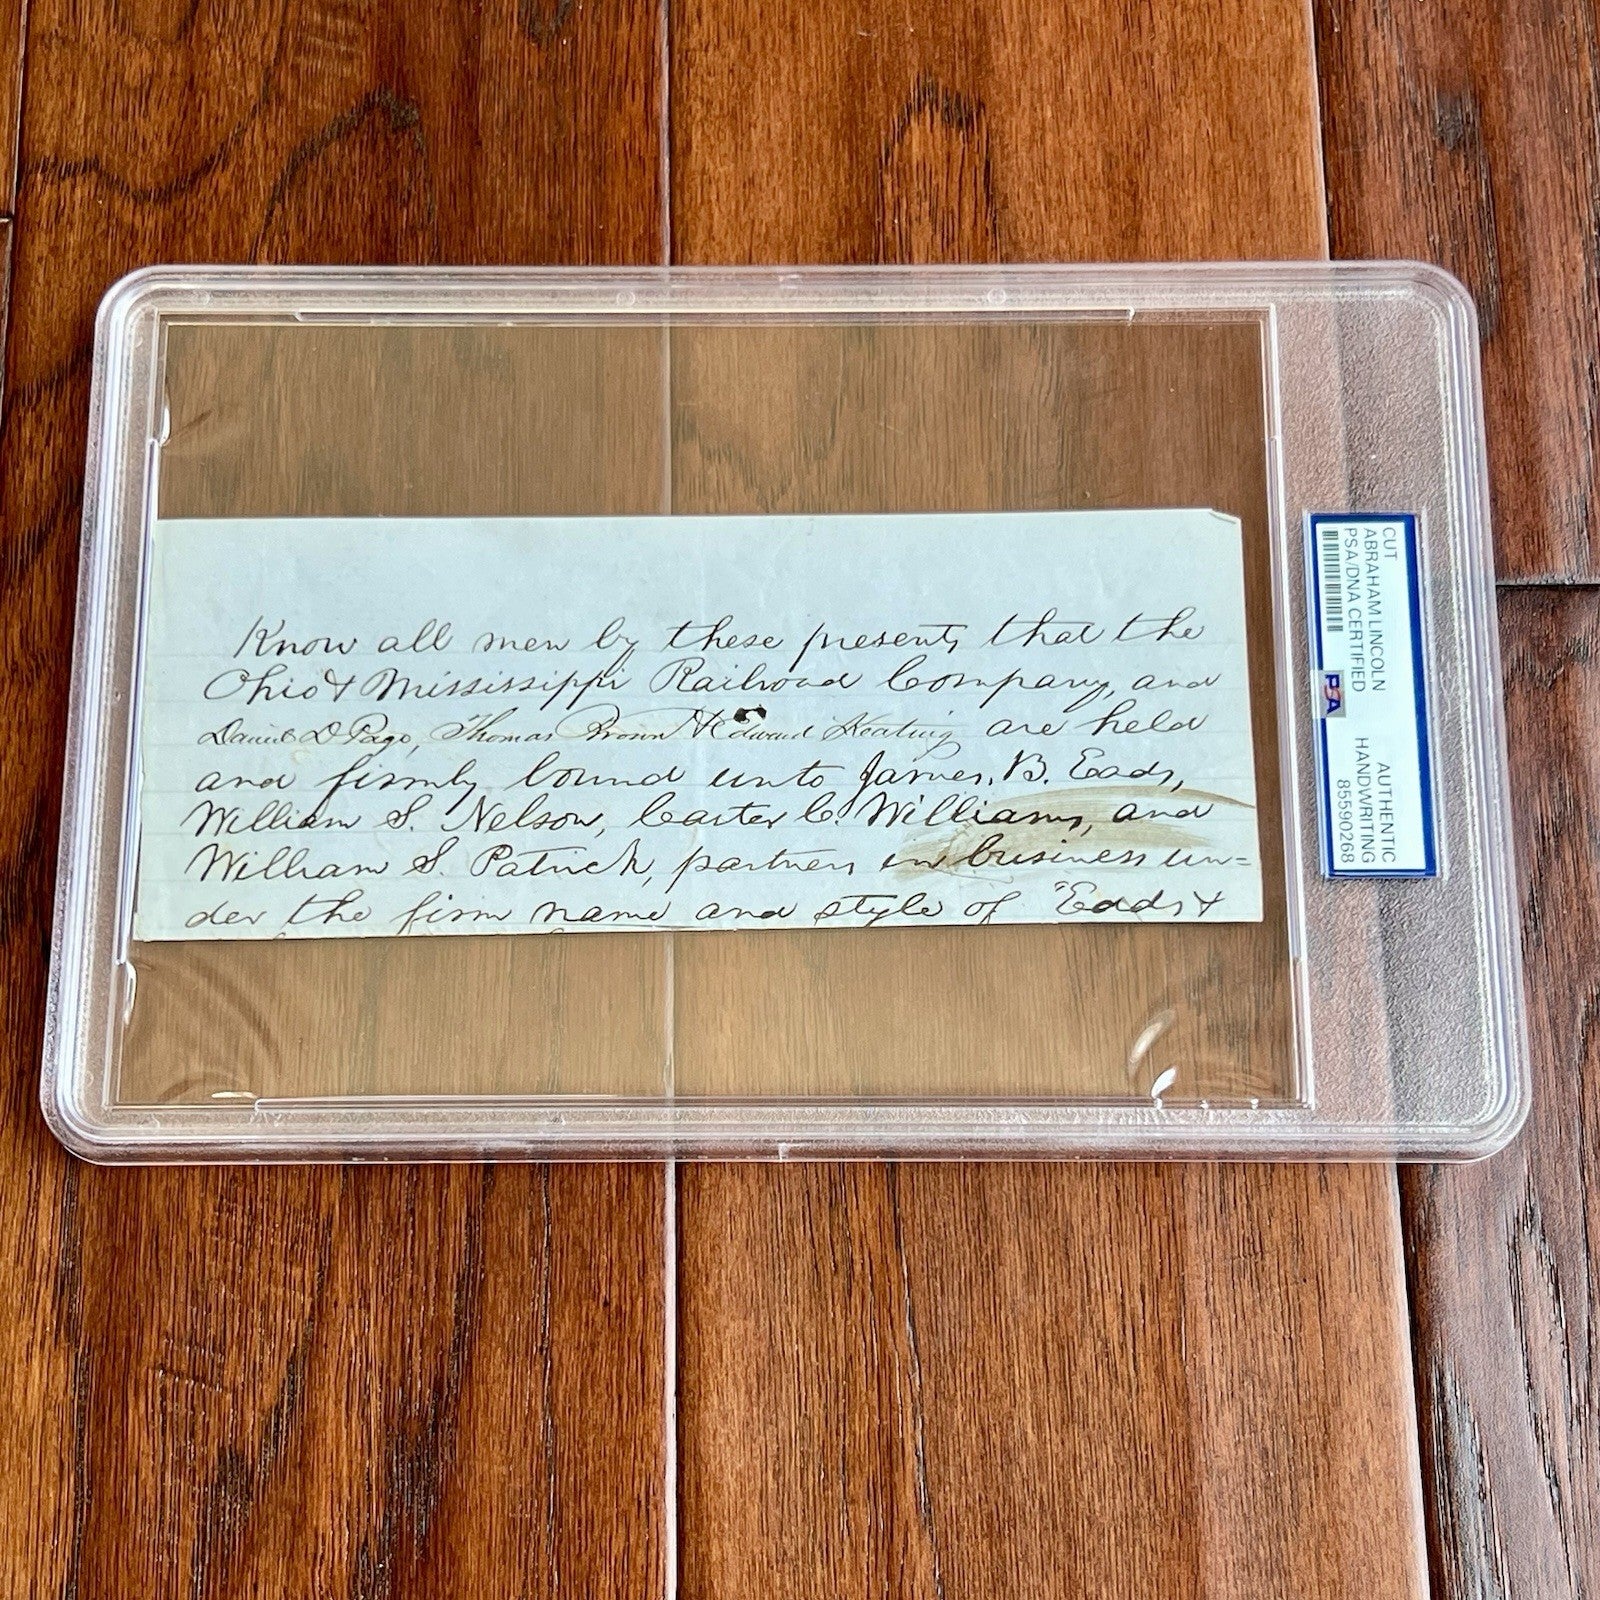 Know all men by these presents, that the
Ohio & Mississippi Railroad Company, and
Daniel D Page, Thomas Brown & Edward Keating are held
and firmly bound unto James, B. Eads,
William S. Nelson, Carter C. Williams, and
William S. Patrick, partners in business un=
der the firm name and style of "Eads &
CUT
ABRAHAM LINCOLN
PSA/DNA CERTIFIED
PSA
AUTHENTIC
HANDWRITING
85590268